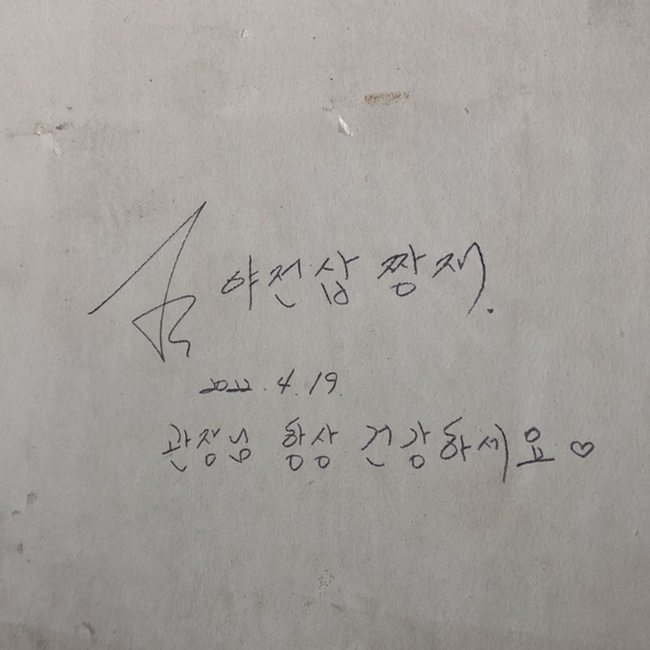 야전삽 짱재.
2022. 4. 19.
관장님 항상 건강하세요♡